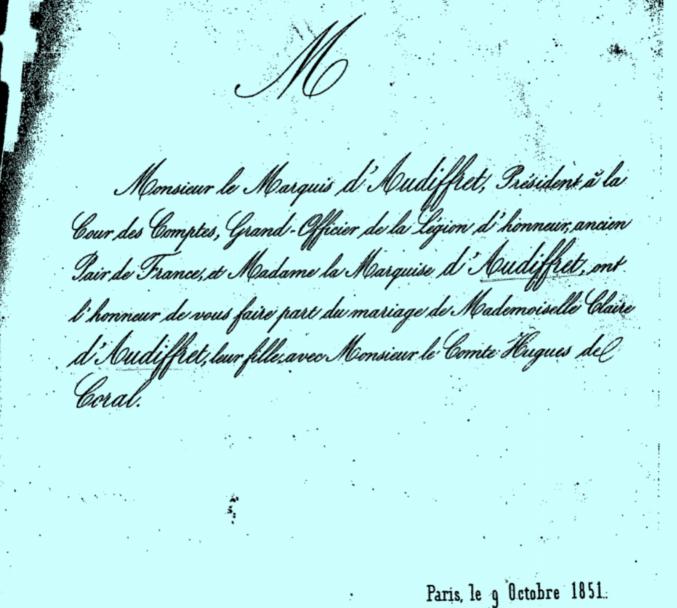 M
Monsieur le Marquis d'Audiffret, Président à la
Cour des Comptes, Grand-Officier de la Légion d'honneur, ancien
Pair de France, et Madame la Marquise d'Audiffret, ont
l'honneur de vous faire part du mariage de Mademoiselle Claire
d'Audiffret, leur fille, avec Monsieur le Comte Hugues de
Coral.
Paris, le 9 Octobre 1851.